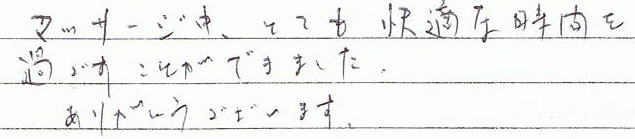 マッサージ中、とても快適な時間を
過ごすことができました。
ありがとうございます。